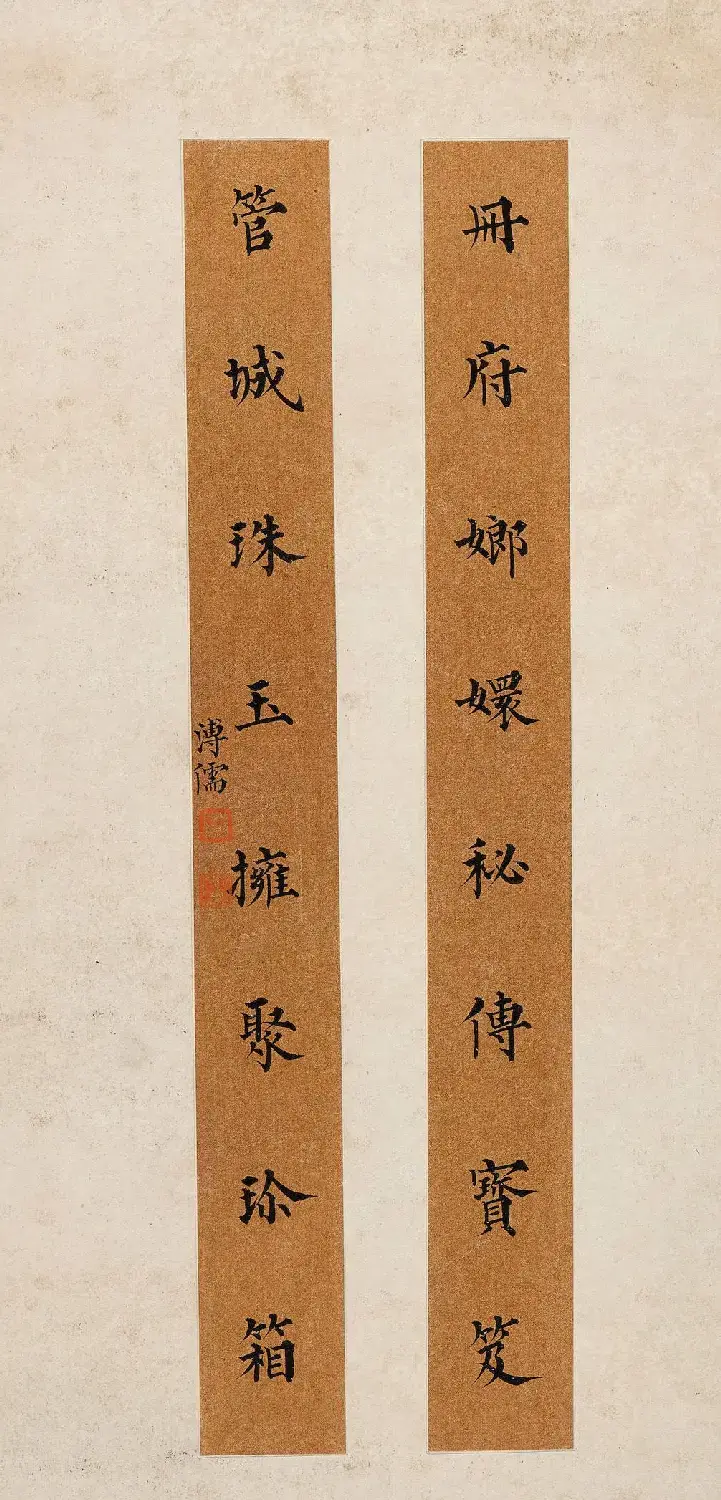 冊府嫏嬛秘傳寶笈
管城珠玉擁聚珍箱
溥儒